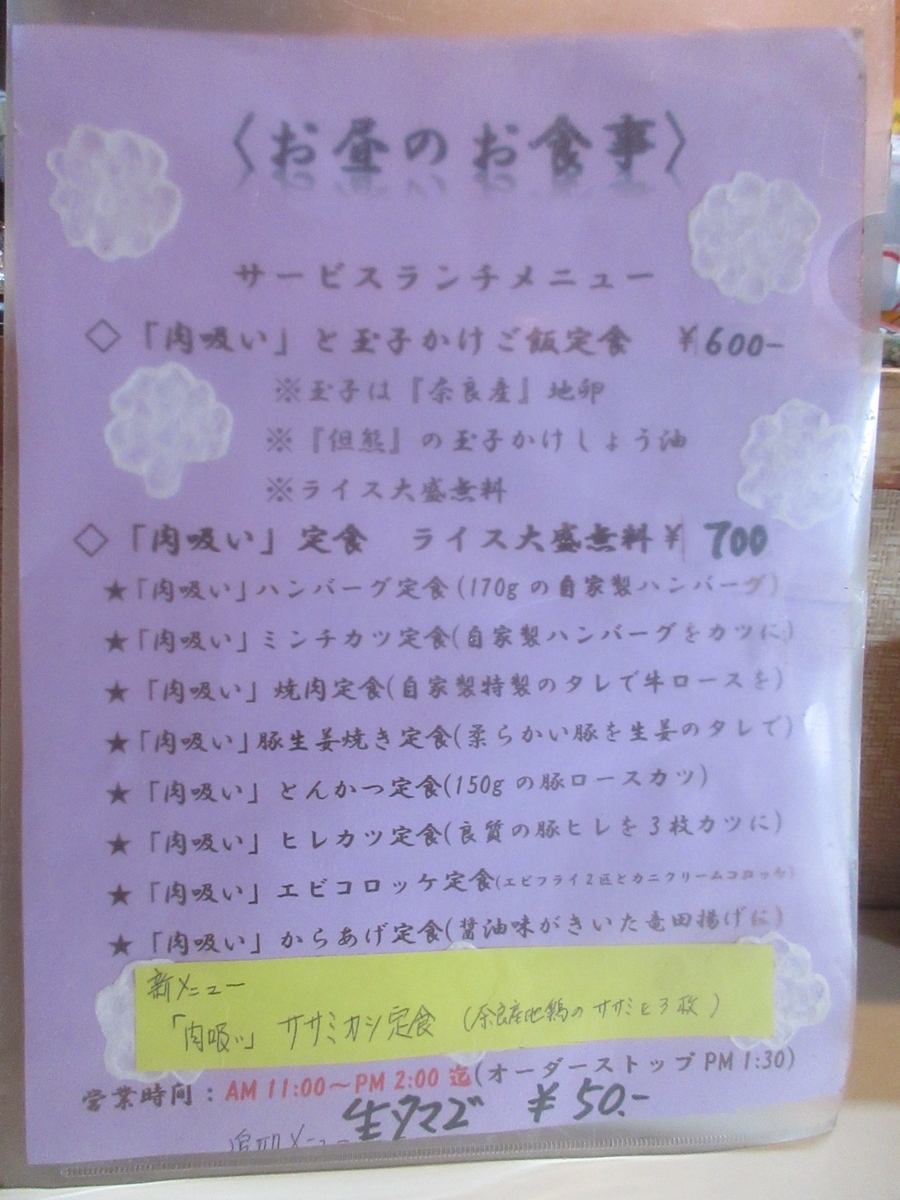 〈お昼のお食事〉
サービスランチメニュー
◇「肉吸い」と玉子かけご飯定食 ￥600-
※玉子は『奈良産』地卵
※『但熊』の玉子かけしょう油
※ライス大盛無料
◇「肉吸い」定食 ライス大盛無料￥700
★「肉吸い」ハンバーグ定食(170gの自家製ハンバーグ)
★「肉吸い」ミンチカツ定食(自家製ハンバーグをカツに)
★「肉吸い」焼肉定食(自家製特製のタレで牛ロースを)
★「肉吸い」豚生姜焼き定食(柔らかい豚を生姜のタレで)
★「肉吸い」とんかつ定食(150gの豚ロースカツ)
★「肉吸い」ヒレカツ定食(良質の豚ヒレを3枚カツに)
★「肉吸い」エビコロッケ定食(エビフライ2匹とカニクリームコロッケ)
★「肉吸い」からあげ定食(醤油味がきいた竜田揚げに)
新メニュー
「肉吸い」ササミカツ定食(奈良産地鶏のササミを3枚)
営業時間：AM 11:00～PM 2:00 迄(オーダーストップPM 1:30)
追加メニュー 生タマゴ ￥50.-